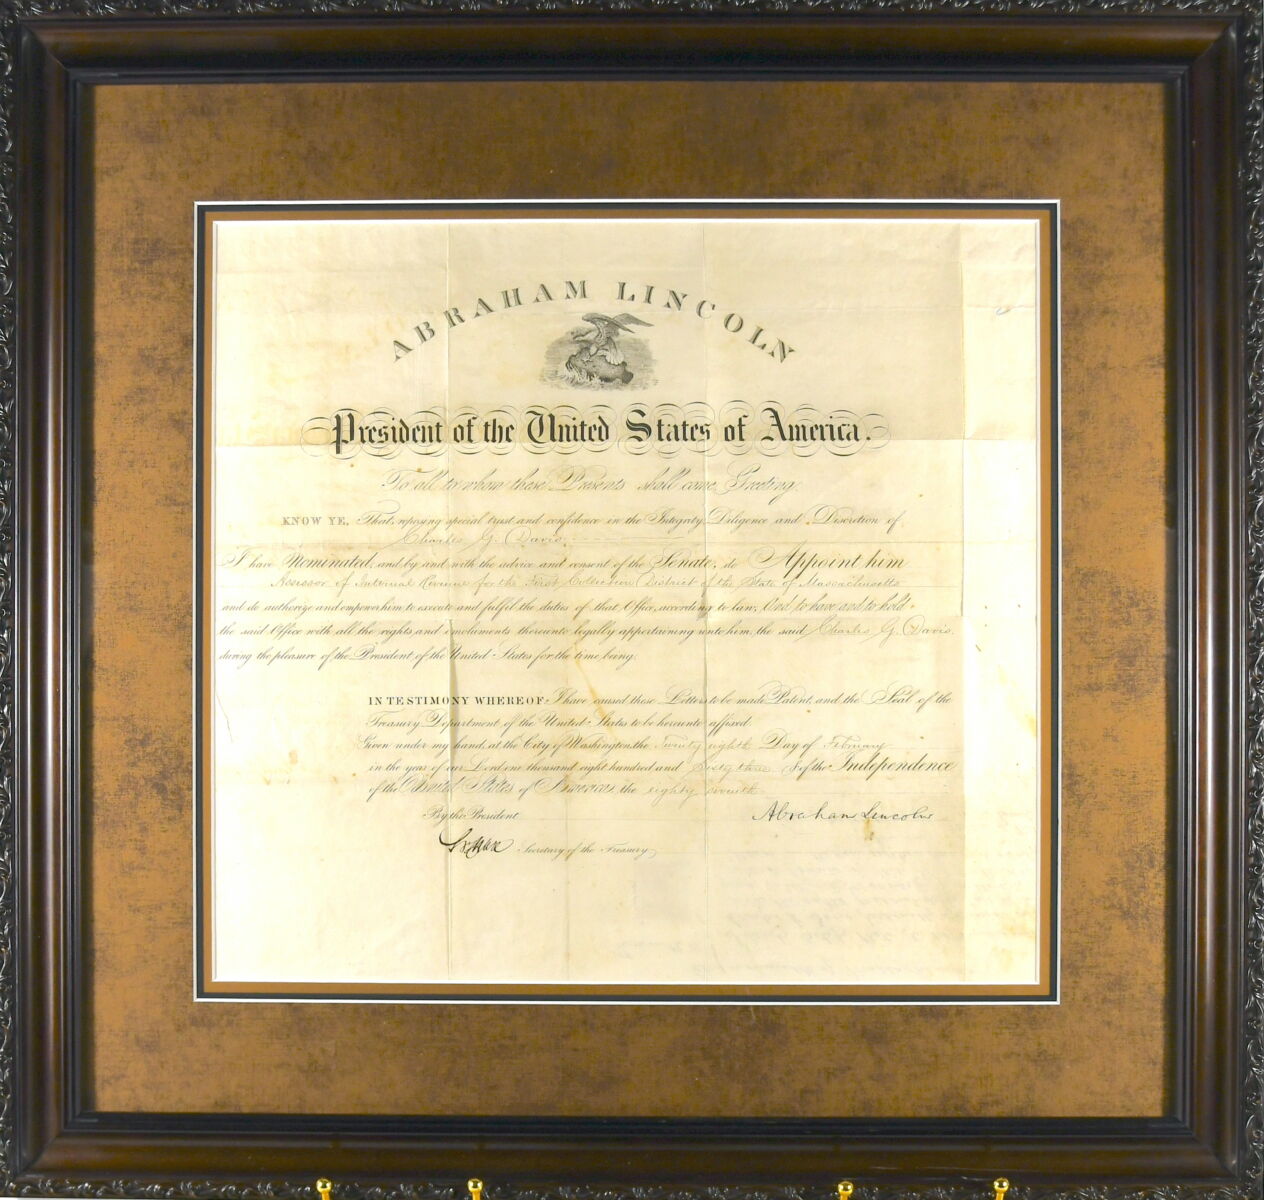 ABRAHAM LINCOLN
President of the United States of America.
To all to whom these Presents shall come, Greeting:
KNOW YE, That, reposing special trust and confidence in the Integrity, Diligence and Discretion of
Charles G. Davis
I have Nominated, and by and with the advice and consent of the Senate, do Appoint him
Assessor of Internal Revenue for the First Collection District of the State of Massachusetts
and do authorize and empower him to execute and fulfil the duties of that Office, according to law; And to have and to hold
the said Office with all the rights and emoluments thereunto legally appertaining unto him, the said Charles G. Davis
during the pleasure of the President of the United States for the time being.
IN TESTIMONY WHEREOF, I have caused these Letters to be made Patent, and the Seal of the
Treasury Department of the United States to be hereunto affixed.
Given under my hand, at the City of Washington, the Twenty eighth Day of February
in the year of our Lord one thousand eight hundred and sixty three & of the Independence
of the United States of America, the eighty seventh
By the President Abraham Lincoln
Secretary of the Treasury